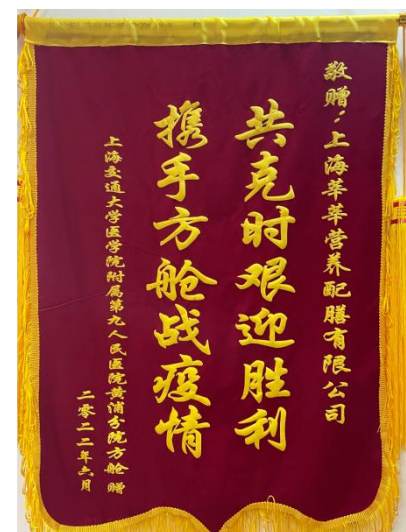 敬赠：上海莘莘营养配膳有限公司
共克时艰迎胜利
携手方舱战疫情
上海交通大学医学院附属第九人民医院黄浦分院方舱 赠
二零二二年六月